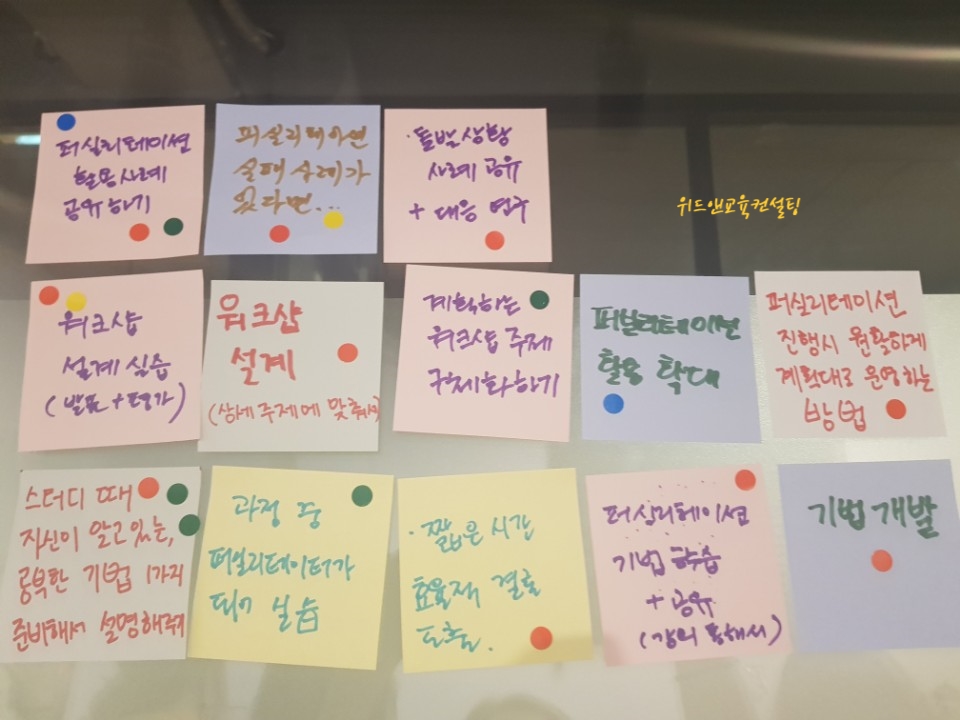 퍼실리테이션
활용사례
공유하기
퍼실리테이션
실패사례가
있다면...
·돌발상황
사례 공유
+ 대응 연구
위드앤교육컨설팅
워크샵
설계실습
(발표+평가)
워크샵
설계
(상세주제에 맞춰서)
계획하는
워크숍 주제
구체화하기
퍼실리테이션
활용 확대
퍼실리테이션
진행시 원활하게
계획대로 운영하는
방법
스터디 때
자신이 알고있는,
공부한 기법 1가지
준비해서 설명해줘
과정 중
퍼실리테이터가
되기 실습
·짧은 시간
효율적 결론
도출.
퍼실리테이션
기법 학습
+ 공유
(강의 통해서)
기법 개발